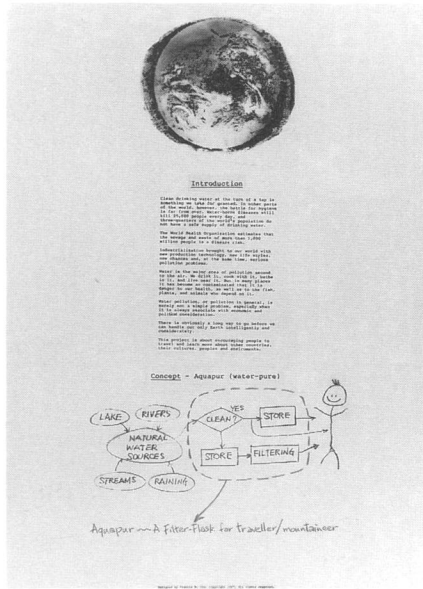 Introduction
Clean drinking water at the turn of a tap is
something we take for granted. In other parts
of the world, however, the battle for hygiene
is far from over. Water-borne diseases still
kill people every day, and
three-quarters of the world's population do
not have a safe supply of drinking water.
The World Health Organisation estimates that
the sewage and waste of more than
million people is a disease risk.
Industrialization brought to our world with
new production technology, new life styles,
and, at the same time, serious
pollution problems.
Water is the major area of pollution around
in the air. We drink it, cook with it, bathe
in it, and live near it. But in many places
it has become so contaminated that it is
danger to our health, as well as to the fish,
plants, and animals who depend on it.
Water pollution, or pollution in general, is
merely not a simple problem, especially when
it is always associate with economic and
consideration.
There is obviously a long way to go before we
can handle our only Earth intelligently and
considerately.
This project is about encouraging people to
travel and learn more about other countries,
their cultures, peoples and
Concept - Aquapur (water-pure)
LAKE
RIVERS
NATURAL
WATER
SOURCES
STREAMS
RAINING
CLEAN?
YES
STORE
STORE
FILTERING
Aquapur ~ A Filter-Flask for traveller/mountaineer